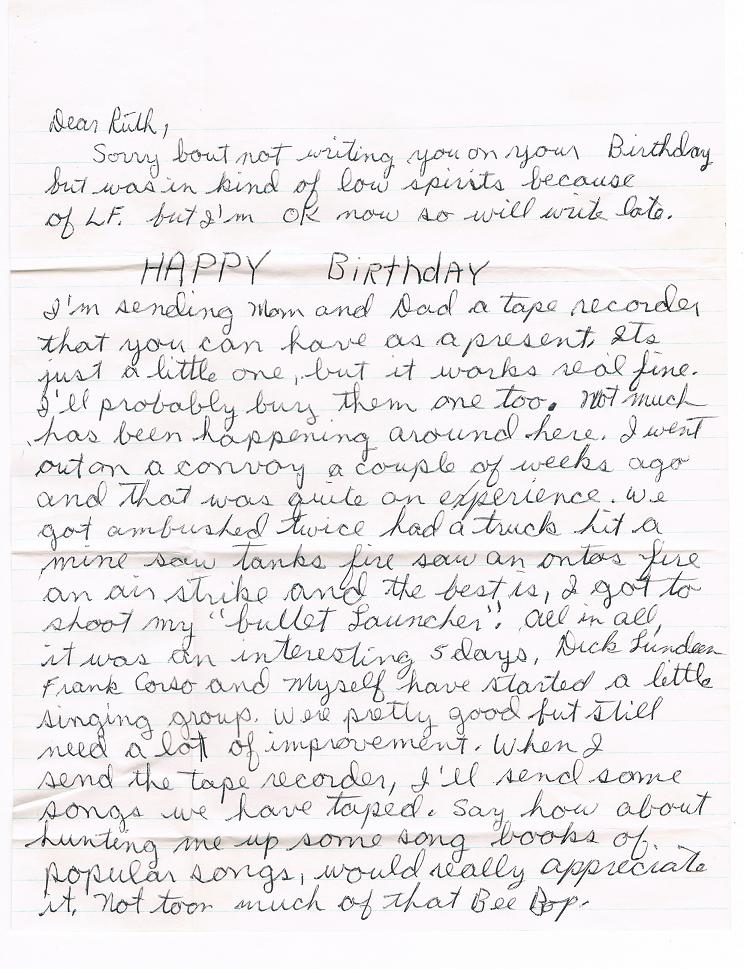 Dear Ruth,
Sorry bout not writing you on your Birthday
but was in kind of low spirits because
of LF. but I'm OK now so will write late.
HAPPY BirthdAY
I'm sending Mom and Dad a tape recorder
that you can have as a present. Its
just a little one, but it works real fine.
I'll probably buy them one too. Not much
has been happening around here. I went
out on a convoy a couple of weeks ago
and that was quite an experience. We
got ambushed twice had a truck hit a
mine saw tanks fire saw an ontos fire
an air strike and the best is, I got to
shoot my "bullet Launcher". all in all,
it was an interesting 5 days, Dick Lundeen
Frank Corso and Myself have started a little
singing group. Were pretty good but still
need a lot of improvement. When I
send the tape recorder, I'll send some
songs we have taped. Say how about
hunting me up some song books of
popular songs, would really appreciate
it. Not toon much of that Bee Bop.